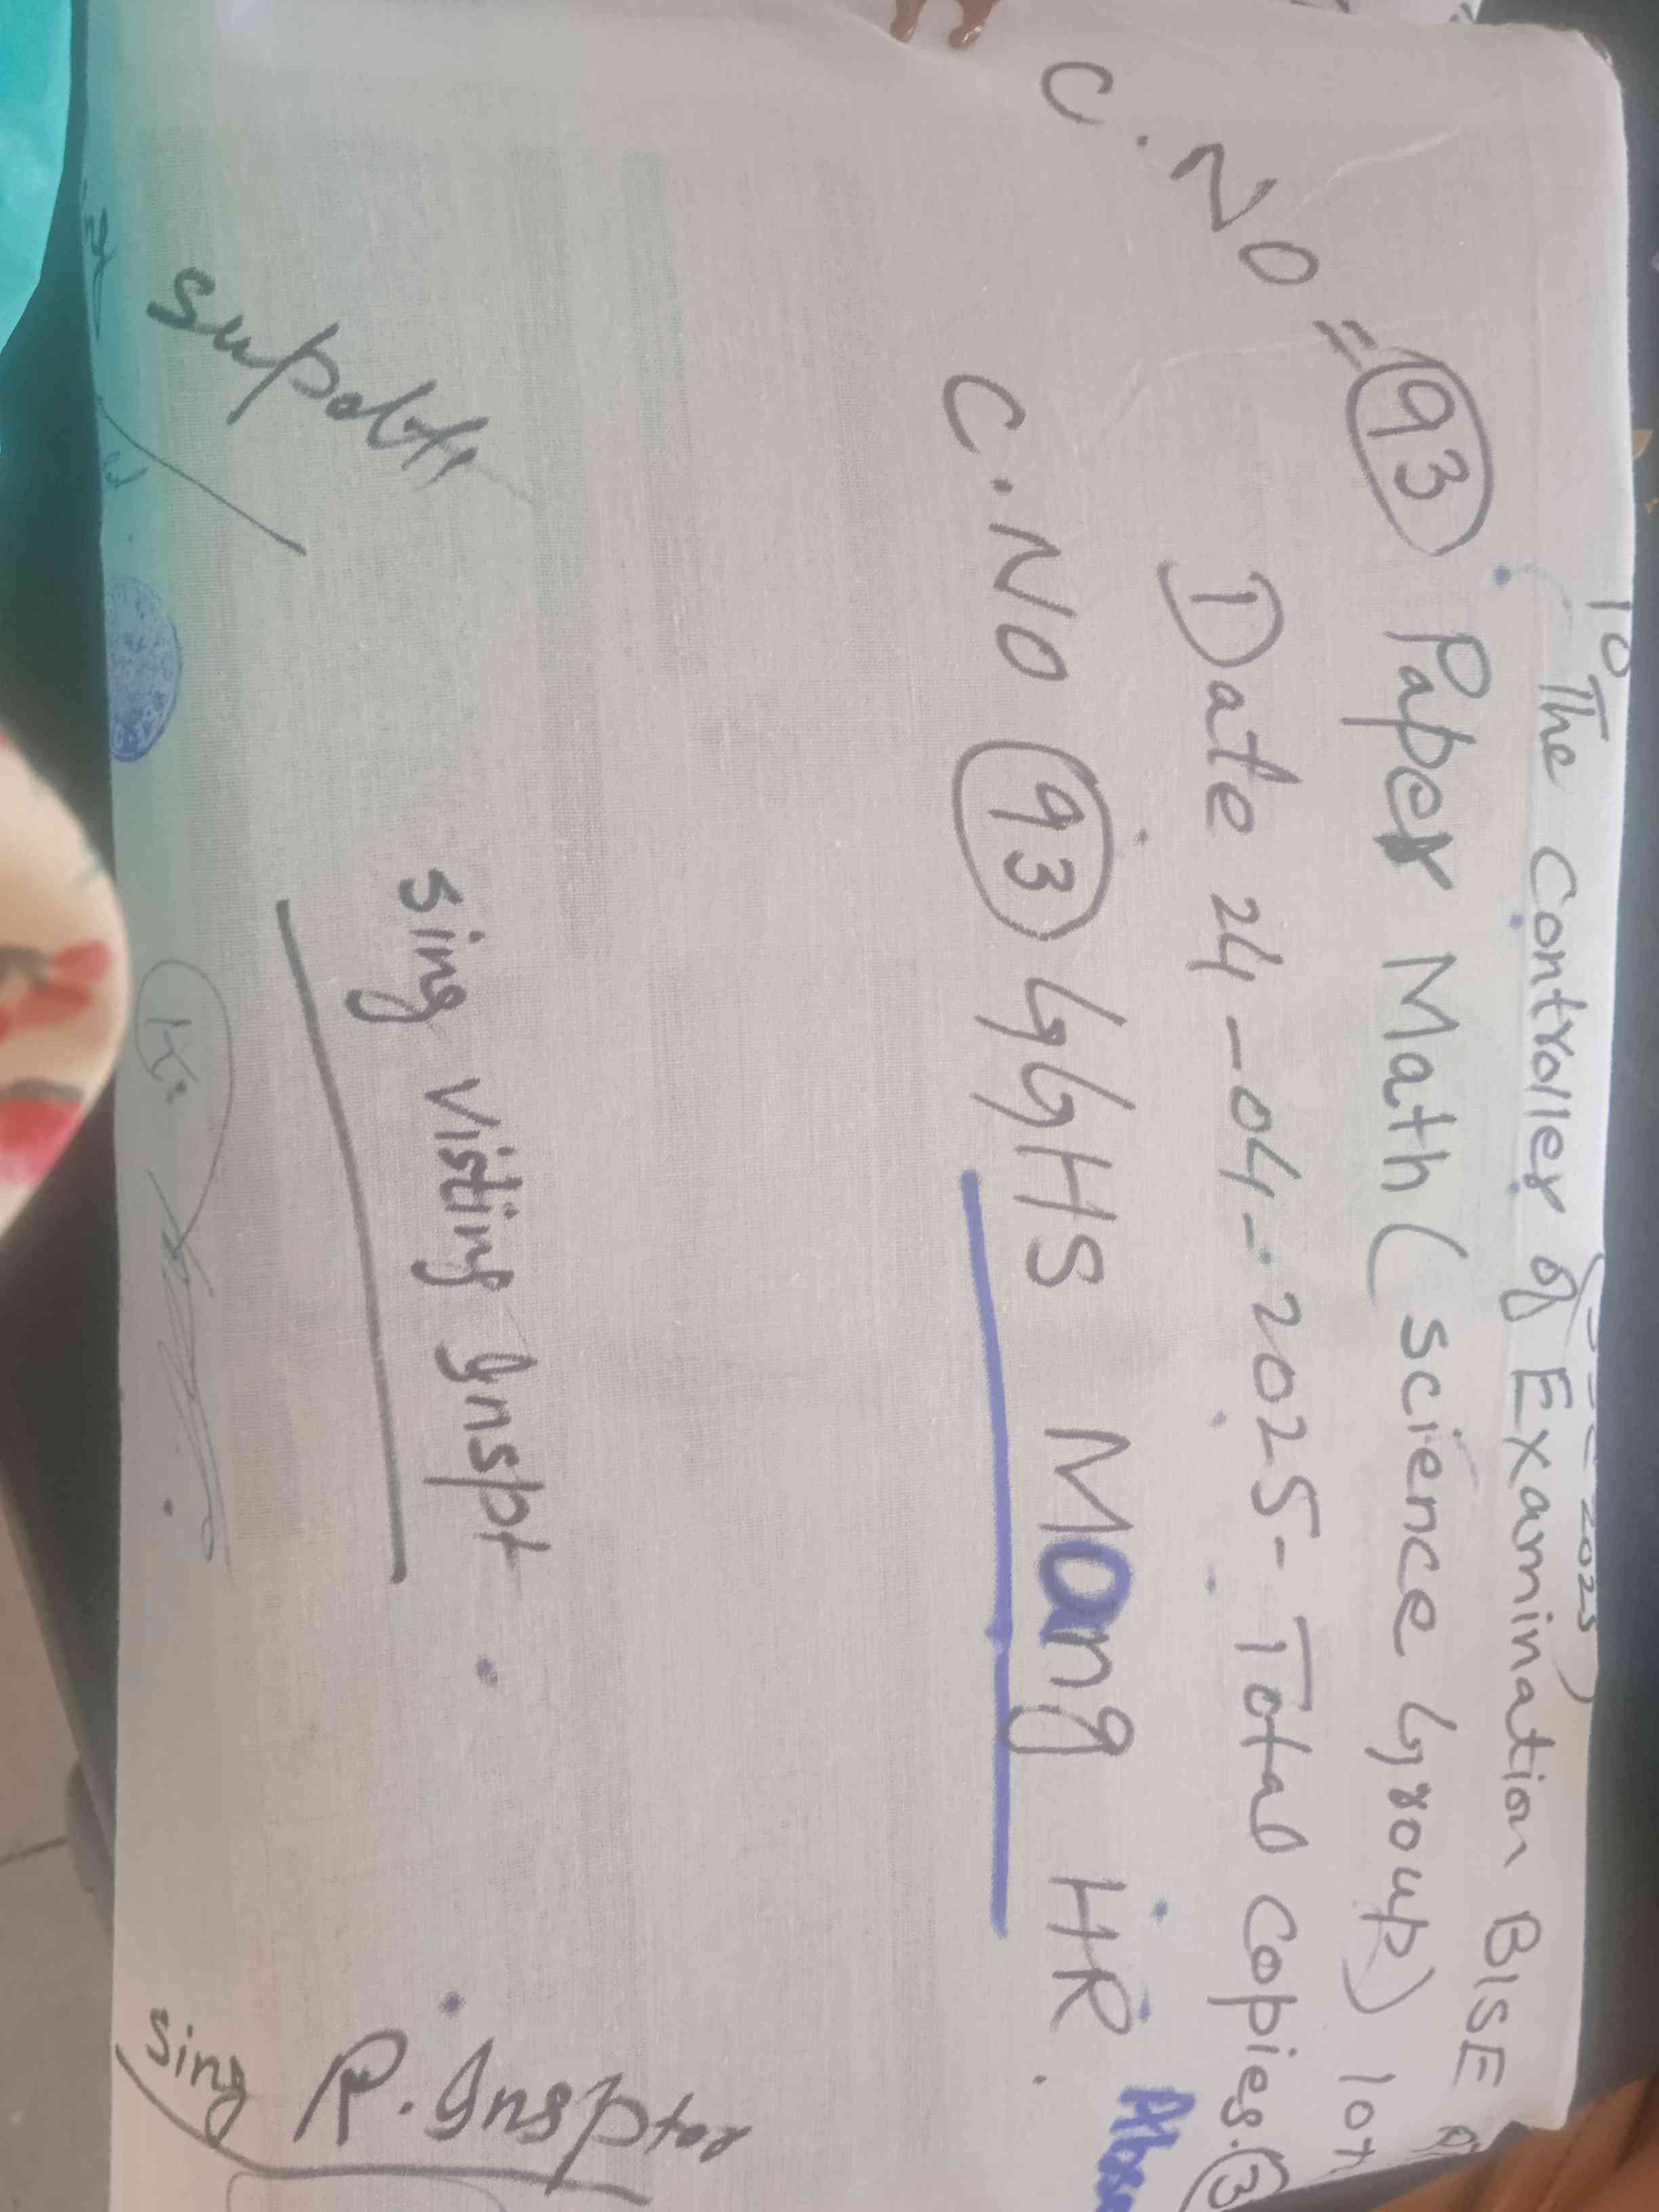 To
The Controller of Examination BISE
C.NO = 93 Paper Math (science Group) 10th
Date 24-04-2025- Total copies. 3
C.NO 93 GGHS Mang HR.
sing visting Inspt
supdtt
sing R.Insptor